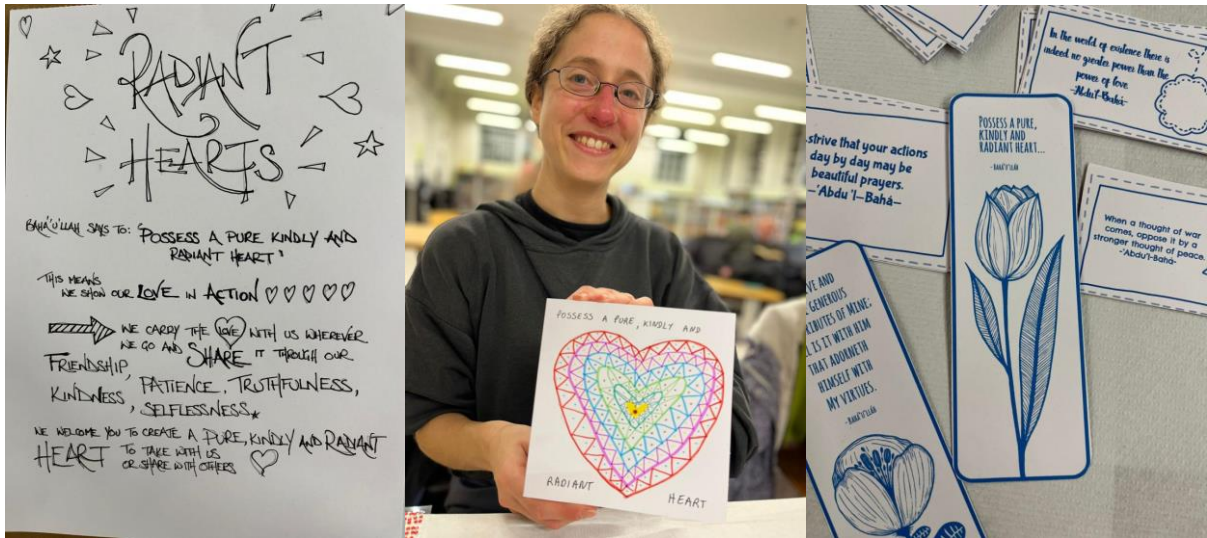 RADIANT
HEARTS
BAHÁ'U'LLAH SAYS TO: 'POSSESS A PURE KINDLY AND
RADIANT HEART'
THIS MEANS
WE SHOW OUR LOVE IN ACTION
WE CARRY THE LOVE WITH US WHEREVER
WE GO AND SHARE IT THROUGH OUR
FRIENDSHIP,
KINDNESS, PATIENCE, TRUTHFULNESS,
SELFLESSNESS.
WE WELCOME YOU TO CREATE A PURE, KINDLY AND RADIANT
HEART TO TAKE WITH US
OR SHARE WITH OTHERS
POSSESS A PURE, KINDLY AND
RADIANT HEART
In the world of existence there is
indeed no greater power than the
power of love
-'Abdu'l-Bahá-
strive that your actions
day by day may be
beautiful prayers.
-'Abdu'l-Bahá-
POSSESS A PURE,
KINDLY AND
RADIANT HEART...
-BAHÁ'U'LLÁH
When a thought of war
comes, oppose it by a
stronger thought of peace.
-'Abdu'l-Bahá-
VE AND
GENEROUS
RIBUTES OF MINE;
L IS IT WITH HIM
THAT ADORNETH
HIMSELF WITH
MY VIRTUES.
-BAHÁ'U'LLÁH